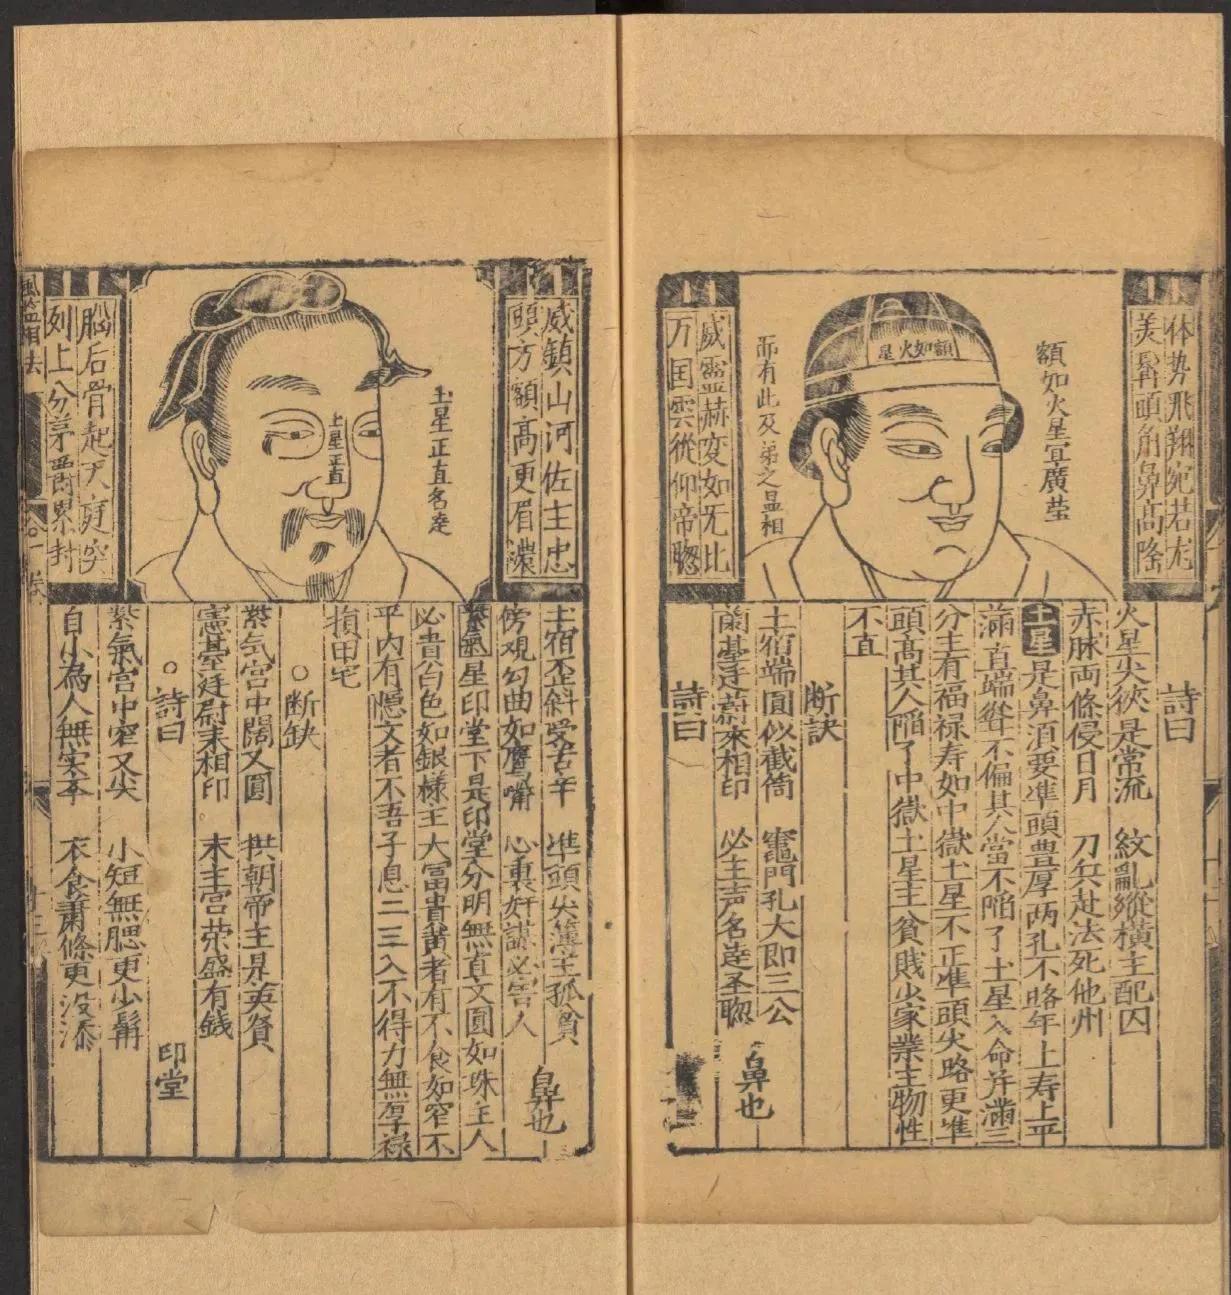 体势飛翔宛若龙
美髯頭角鼻高隆
額如火星宜廣莹
額如火星
而有此及弟之昷相
威靈赫变如无比
万囯雲從仰帝聦
詩曰
火星尖狹是常流　紋亂縱橫主配囚
赤脉両條侵日月　刀兵赴法死他州
土星是鼻湏要準頭豊厚両孔不略年上寿上平
滿直端聳不偏其人當不陷了土星入命并滿三
分主有福禄寿如中嶽土星不正準頭尖略更準
頭髙其人陥了中嶽土星主貧賎少家業主物性
不直
断訣
土宿端圓似截筒　竈門孔大即三公
蘭䑓廷蔚來相印　必主声名逹圣聦
鼻也
詩曰
威鎮山河佐主忠
頭方額高更眉濃
土星正直名逹
土星正直
腦后骨起天庭突
列土分茅爵累封
土宿歪斜受苦辛　準頭尖薄主孤貧
鼻也
傍覌勾曲如鷹嘴　心裏奸謀必害人
紫氣星印堂下是印堂分明無直文圓如珠主人
必貴白色如銀樣主大冨貴黄者有不食如窄不
平内有隱文者不吾子息二三入不得力無厚禄
損田宅
○断缺
紫气宫中闊又圓　拱朝帝主是英賢
憲䑓廷尉末相印　末主宫荣盛有錢
○詩曰
印堂
紫氣宫中窄又尖　小短無腮更少髯
自小為人無实孛　衣食蕭條更没添
風鑑相法
十三